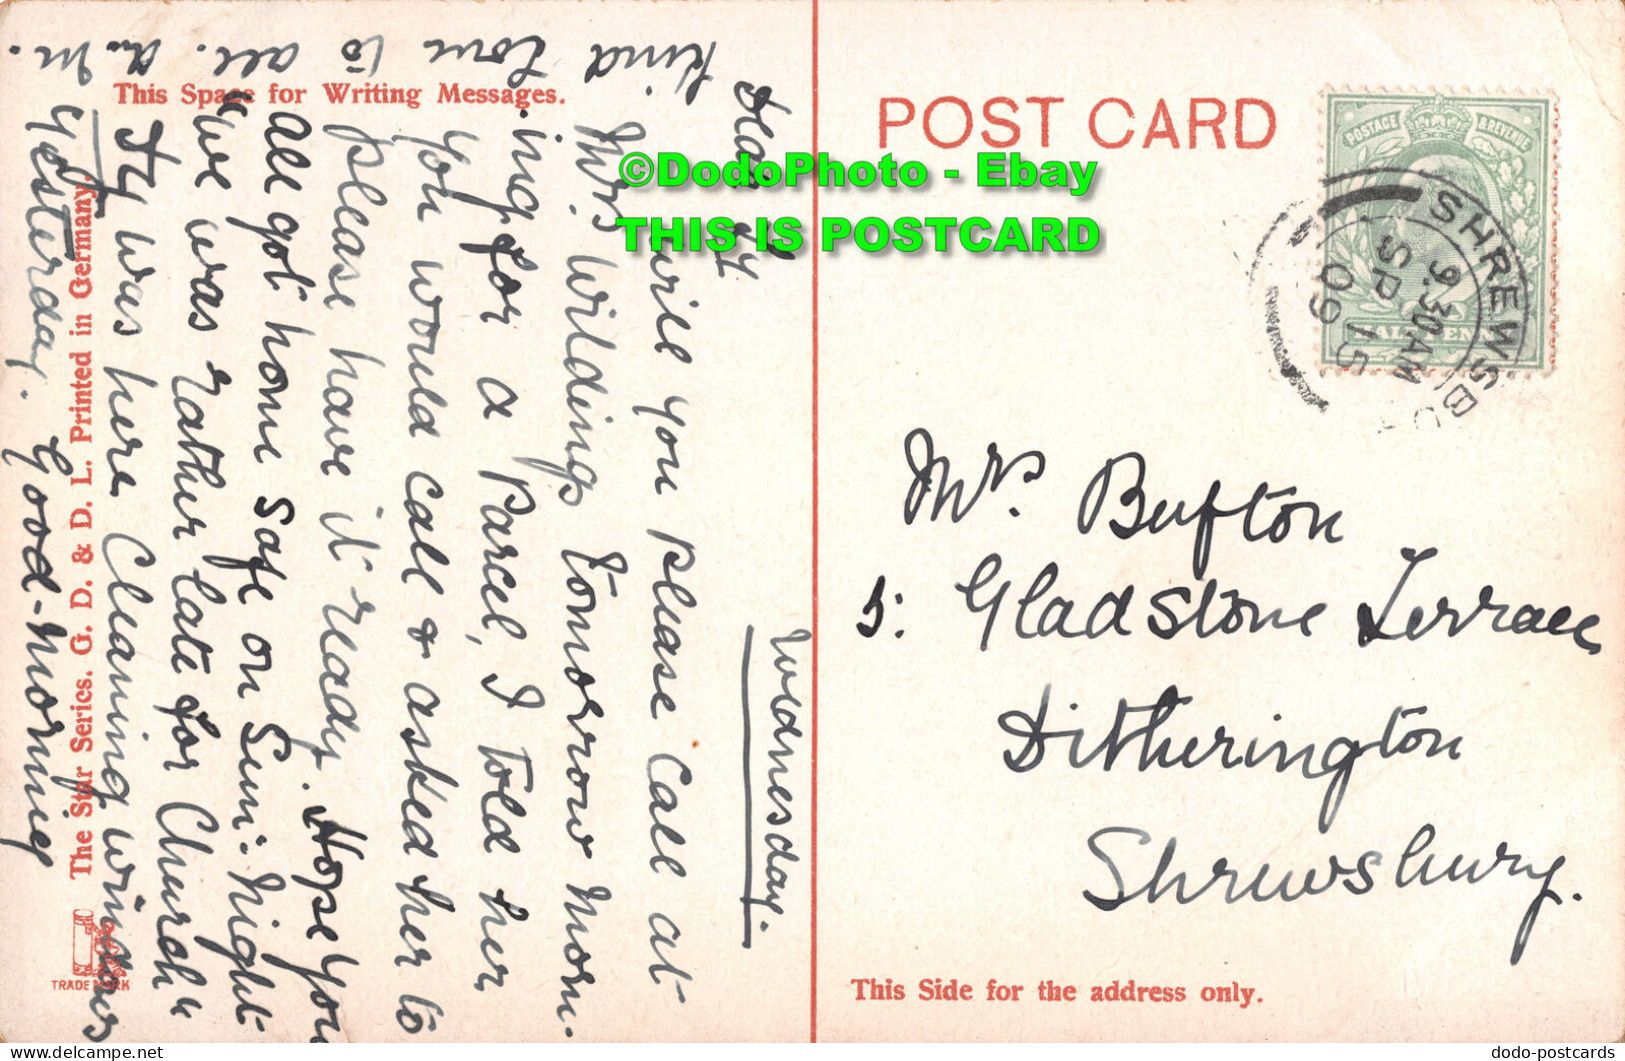 This Space for Writing Messages.
Wednesday.
Dear
will you please call at
Mrs Wildings Tomorrow Morn.
ing for a Parcel, I told her
you would call & asked her to
please have it ready. Hope you
all got home safe on Sun: Night
"we was rather late for Church"
was here Cleaning windows
yesterday. Good-Morning
kind love to all. A.M.
The Star Series. G. D. & D. L. Printed in Germany.
TRADE MARK
POST CARD
POSTAGE & REVENUE
HALFPENNY
SHREWSBURY
9.30AM
SP 15
09
Mrs. Bufton
5: Gladstone Terrace
Ditherington
Shrewsbury.
This Side for the address only.
©DodoPhoto - Ebay
THIS IS POSTCARD
dodo-postcards